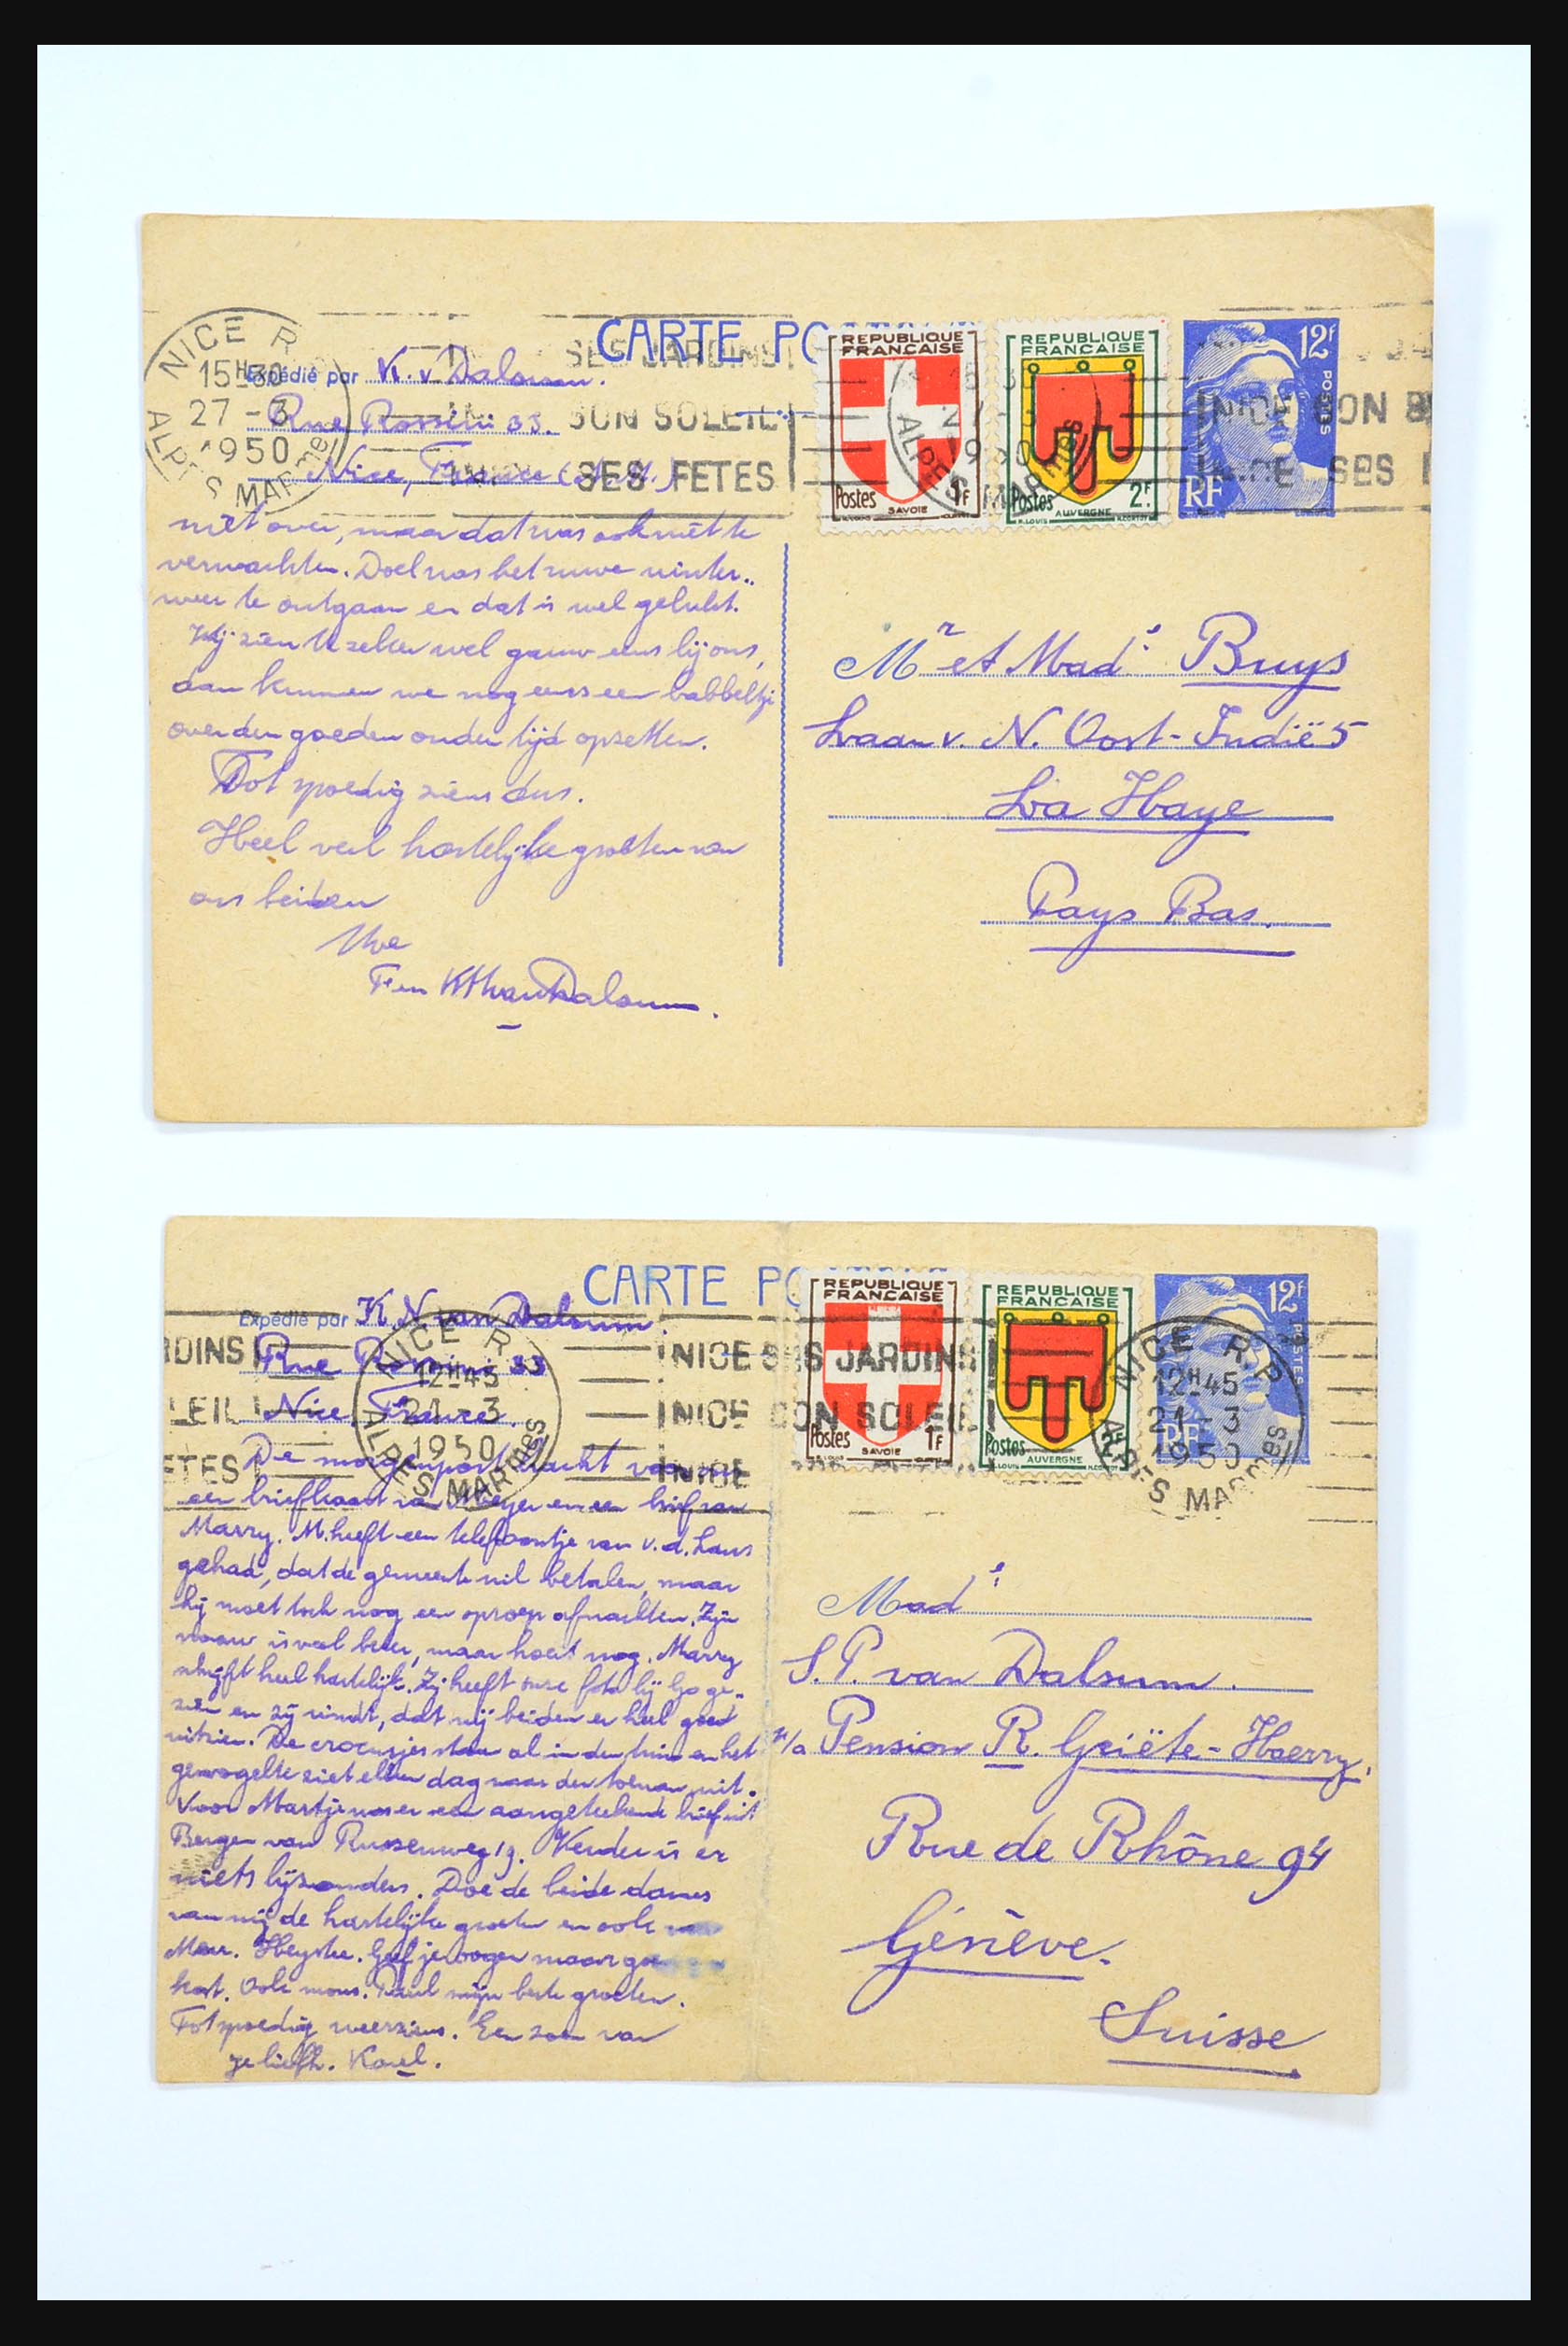 CARTE PO
NICE R
15H30
27-3
1950
ALPES MARmes
Expédié par K. v Dalsum.
Rue Rossini 33.
Nice, France (A.M.)
SES JARDINS
SON SOLEIL
SES FETES
REPUBLIQUE FRANCAISE
Postes SAVOIE 1F
REPUBLIQUE FRANCAISE
Postes AUVERGNE 2F
12F POSTES
RF
niet over, maar dat was ook niet te
verwachten. Doel was het ruwe winter..
weer te ontgaan en dat is wel gelukt.
Wij zien U zeker wel gauw eens bij ons,
dan kunnen we nog eens een babbeltje
over den goeden ouden tijd opzetten.
Tot spoedig ziens dus.
Heel veel hartelijke groeten van
ons beiden
Uwe
van Dalsum.
Mr et Made Bruys
Laan v. N. Oost-Indië 5
La Haye
Pays Bas.
CARTE PO
Expédié par K.N. van Dalsum.
Rue Rossini 33
Nice, France.
NICE R
12H45
21-3
1950
ALPES MARmes
NICE SES JARDINS
NICE SON SOLEIL
NICE
REPUBLIQUE FRANCAISE
Postes SAVOIE 1F
REPUBLIQUE FRANCAISE
Postes AUVERGNE
12F POSTES
RF
NICE R.P
12H45
21-3
1950
ALPES MARmes
De morgenpost bracht voor
een briefkaart van Meyer en een brief van
Marry. M. heeft een telefoontje van v.d. Laus
gehad, dat de gemeente wil betalen, maar
hij moet toch nog een oproep afwachten. Zijn
vrouw is veel beter, maar hoest nog. Marry
schrijft heel hartelijk. Zij heeft onze foto bij Go ge-
zien en zij vindt, dat wij beiden er heel goed
uitzien. De crocusjes staan al in den tuin en het
gevogelte ziet elken dag naar den toevoer uit.
Voor Martje was er een aangetekende brief uit
Bergen van Russenweg 19. Verder is er
niets bijzonders. Doe de beide dames
van mij de hartelijke groeten en ook
Mevr. Heyske. Geef je oogen maar goe
kost. Ook mons. Paul mijn beste groeten.
Tot spoedig weerziens. Een zoen van
je liefh. Karel.
Made
S.P. van Dalsum.
p/a Pension R. Griëte-Haerry,
Rue de Rhône 94
Génève.
Suisse